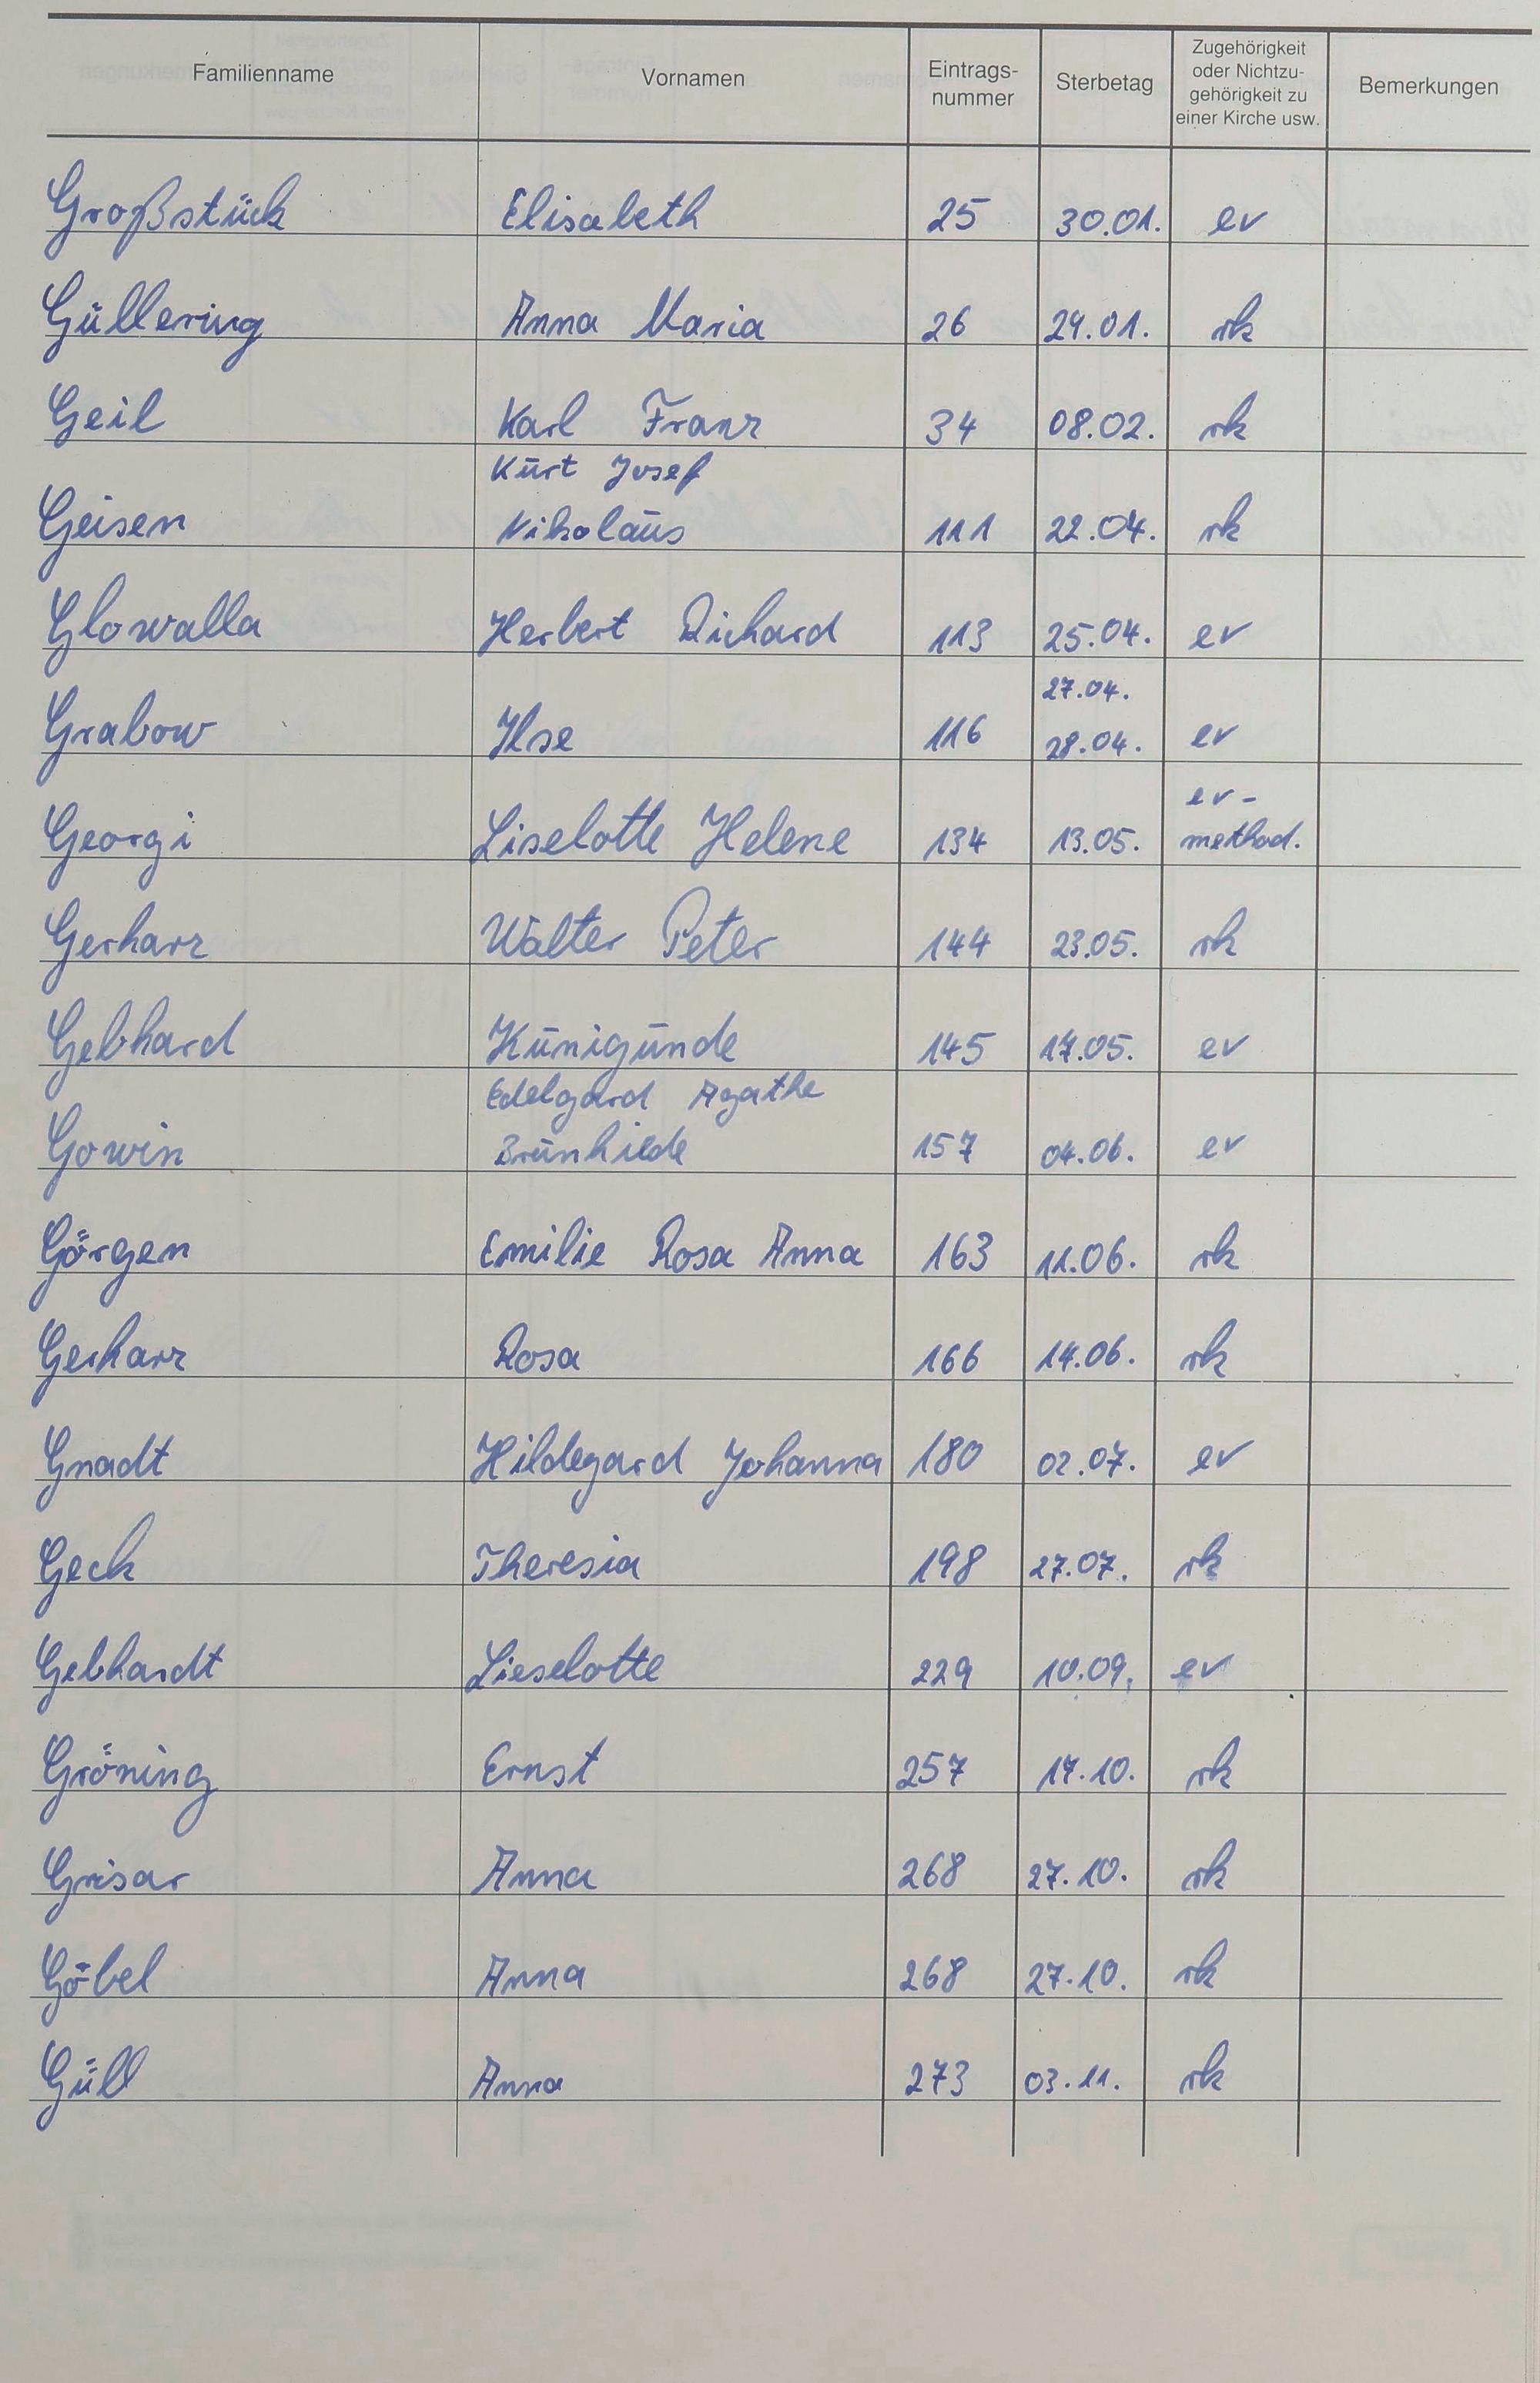 Familienname Vornamen Eintrags-nummer Sterbetag Zugehörigkeit oder Nichtzu-gehörigkeit zu einer Kirche usw. Bemerkungen
Großstück Elisabeth 25 30.01. ev
Güllering Anna Maria 26 29.01. rk
Geil Karl Franz 34 08.02. rk
Kurt Josef
Geisen Nikolaus 111 22.04. rk
Glowalla Herbert Richard 113 25.04. ev
27.04.
Grabow Ilse 116 28.04. ev
ev-
Georgi Liselotte Helene 134 13.05. method.
Gerharz Walter Peter 144 23.05. rk
Gebhard Kunigunde 145 17.05. ev
Edelgard Agathe
Gowin Brunhilde 157 04.06. ev
Görgen Emilie Rosa Anna 163 11.06. rk
Gerharz Rosa 166 14.06. rk
Gnadt Hildegard Johanna 180 02.07. ev
Geck Theresia 198 27.07. rk
Gebhardt Lieselotte 229 10.09. ev
Gröning Ernst 257 17.10. rk
Grisar Anna 268 27.10. rk
Göbel Anna 268 27.10. rk
Güll Anna 273 03.11. rk